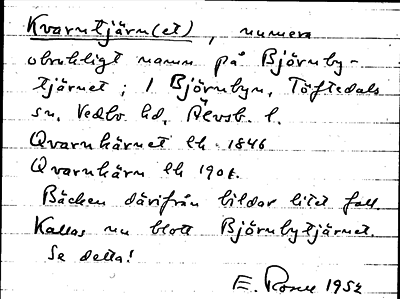 Kvarntjärn(et), numera
obrukligt namn på Björnby-
tjärnet; i Björnbyn, Töftedals
sn, Vedbo hd, Älvsb. l.
Qvarnkärnet Ek 1846
Qvarnkärn Ek 1908.
Bäcken därifrån bildar litet fall.
Kallas nu blott Björnbytjärnet.
Se detta!
E. 1952